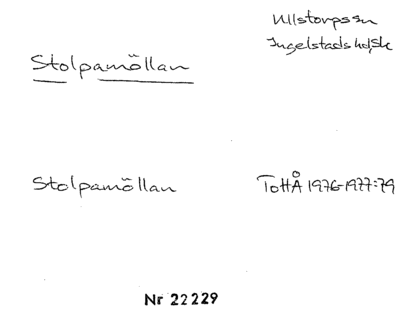 Ullstorps sn
Ingelstads hd, Sk
Stolpamöllan
Stolpamöllan
ToHÅ 1976-1977:79
Nr 22229